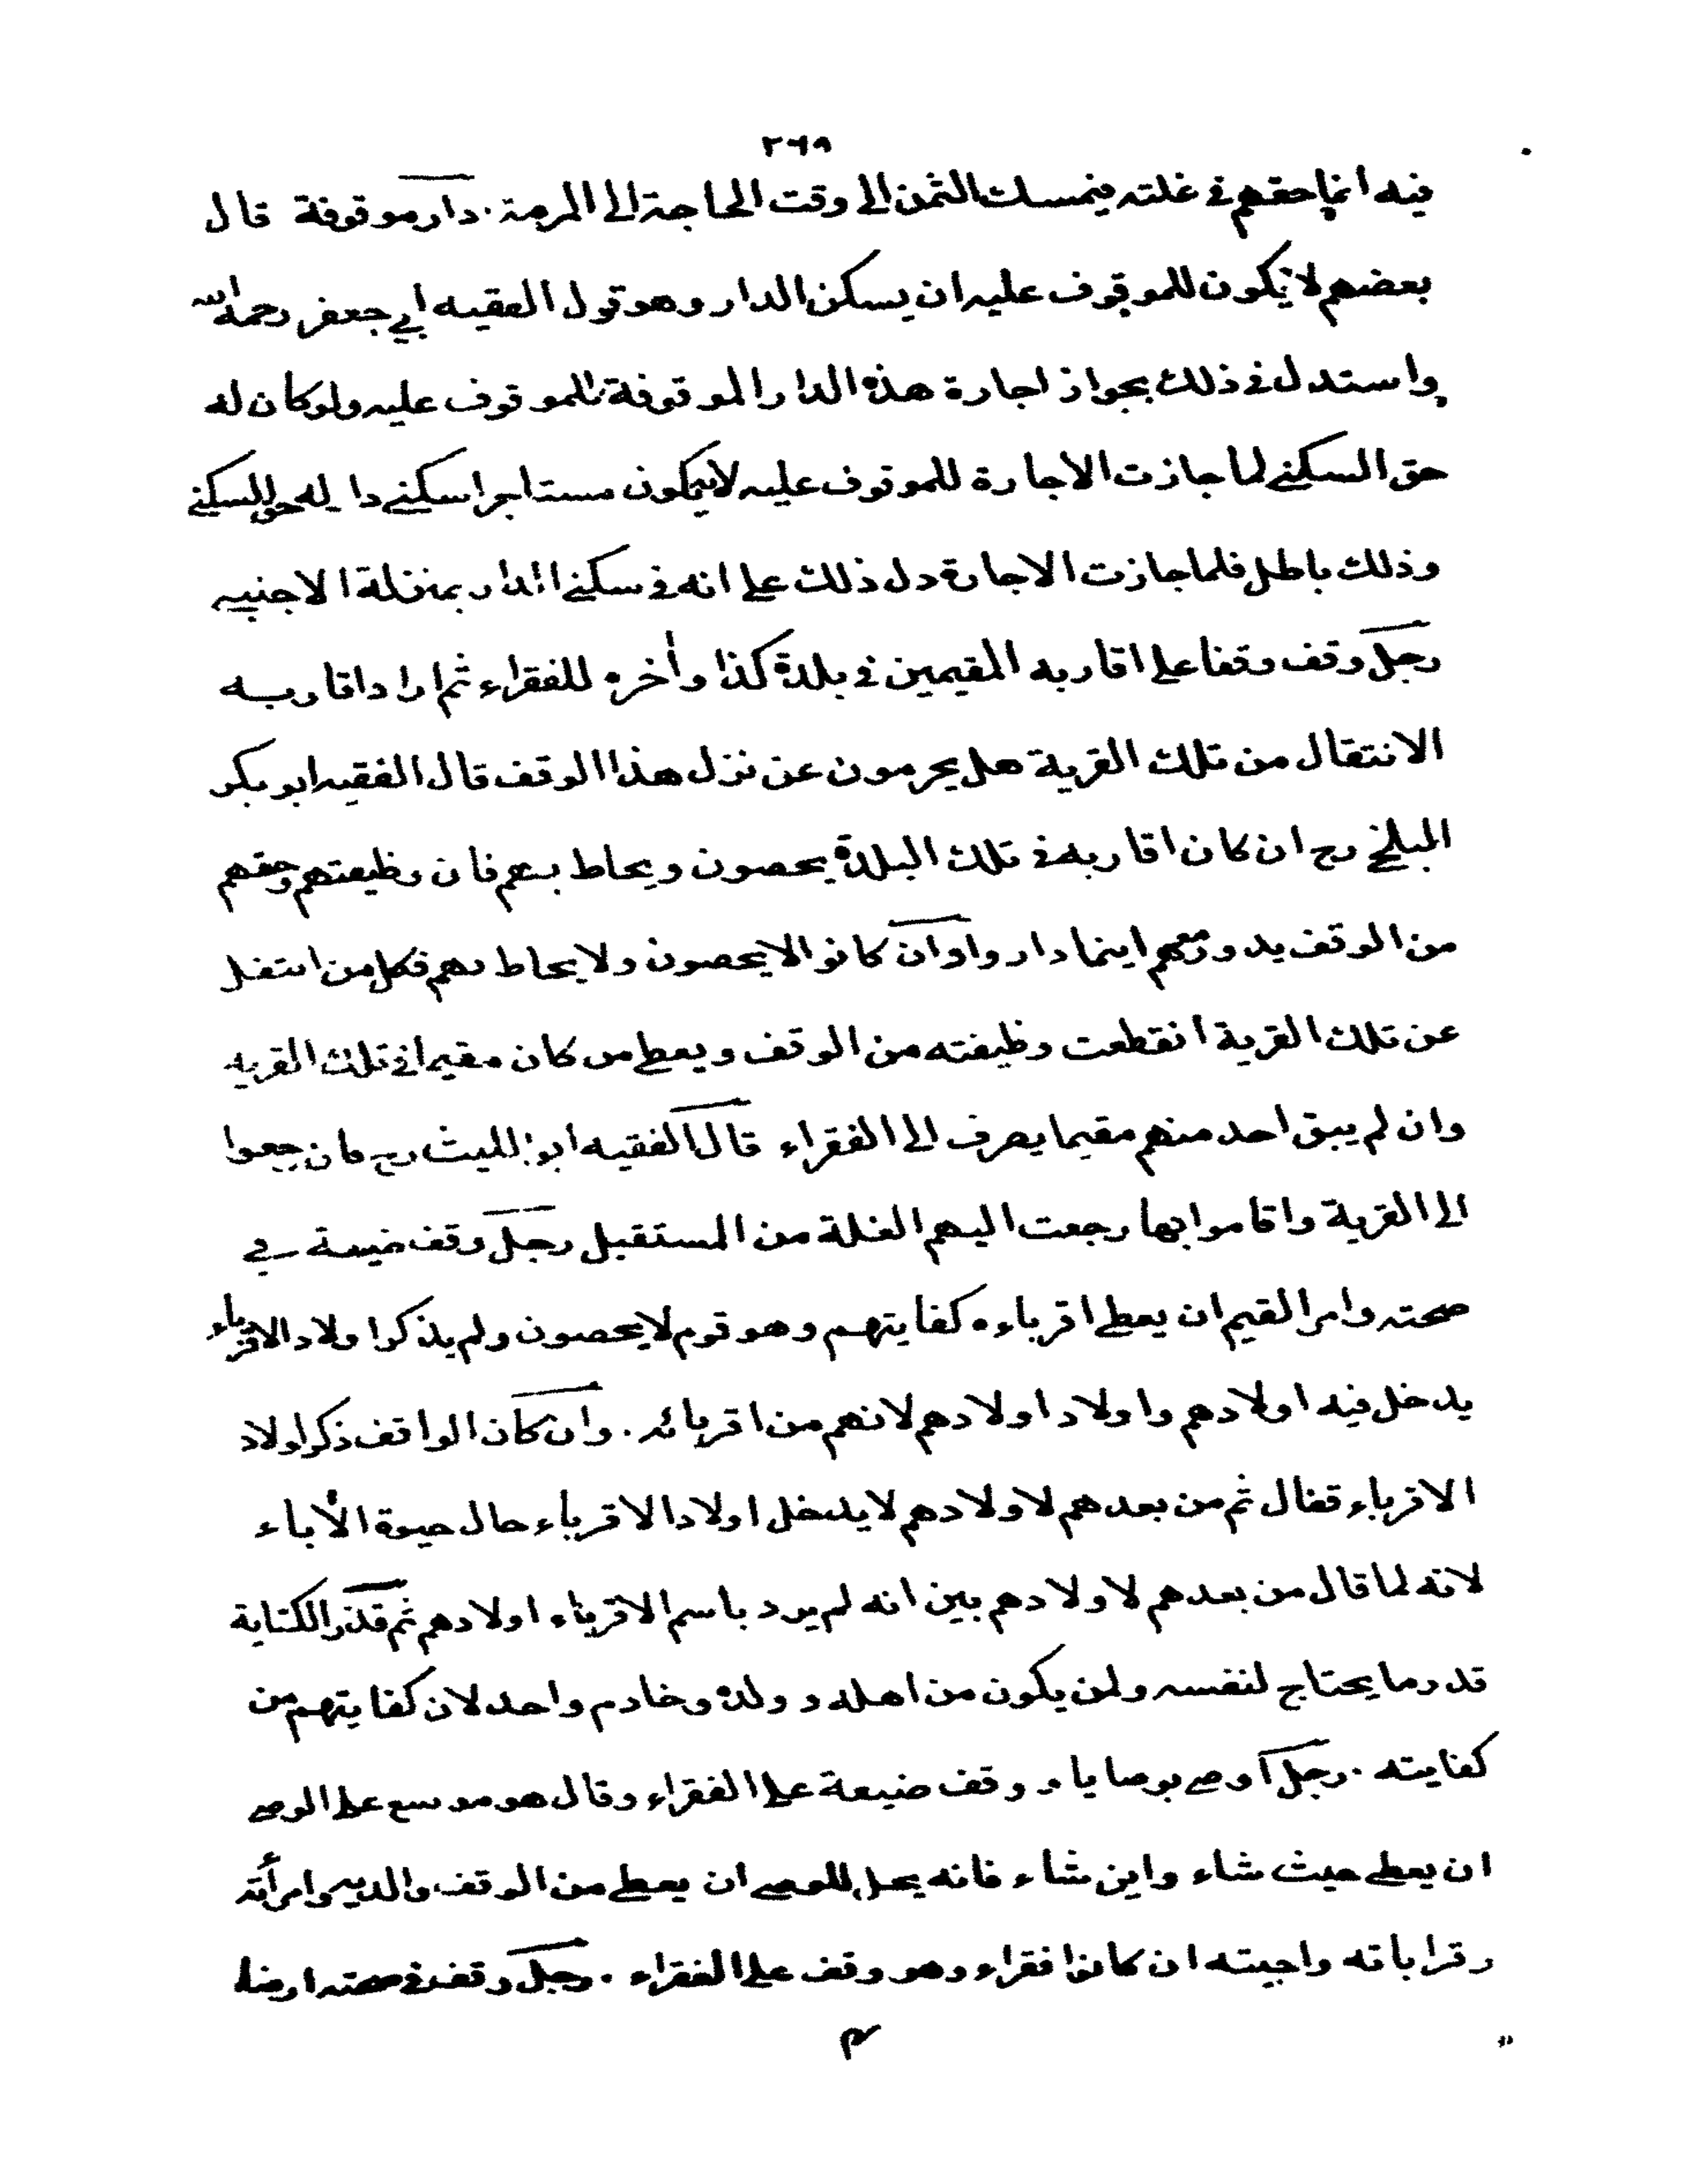 ٢٦٩
فيه انما حقهم في غلته فيمسك الثمن الى وقت الحاجة الى المرمة . دار موقوفة قال
بعضهم لا يكون للموقوف عليه ان يسكن الدار وهو قول الفقيه ابي جعفر رحمه الله
واستدل في ذلك بجواز اجارة هذه الدار الموقوفة للموقوف عليه ولو كان له
حق السكنى لما جازت الاجارة للموقوف عليه لا يكون مستاجرا سكنى دا له حق السكنى
وذلك باطل فلما جازت الاجارة دل ذلك على انه في سكنى الدار بمنزلة الاجنبي
رجل وقف وقفا على اقاربه المقيمين في بلدة كذا وأخره للفقراء ثم اراد اقاربه
الانتقال من تلك القرية هل يحرمون عن نزل هذا الوقف قال الفقيه ابو بكر
البلخي رح ان كان اقاربه في تلك البلدة يحصون ويحاط بهم فان وظيفتهم وحقهم
من الوقف يدور معهم اينما داروا وان كانوا لا يحصون ولا يحاط بهم فكل من انتقل
عن تلك القرية انقطعت وظيفته من الوقف ويعطى من كان مقيما في تلك القرية
وان لم يبق احد منهم مقيما يصرف الى الفقراء قال الفقيه ابو الليث رح فان رجعوا
الى القرية واقاموا بها رجعت اليهم الغلة من المستقبل رجل وقف ضيعة في
صحته وامر القيم ان يعطى اقرباءه كفايتهم وهو قوم لا يحصون ولم يذكر اولاد الاقرباء
يدخل فيه اولادهم واولاد اولادهم لانهم من اقربائه . وان كان الواقف ذكر اولاد
الاقرباء فقال ثم من بعدهم لاولادهم لا يدخل اولاد الاقرباء حال حيوة الأباء
لانه لما قال من بعدهم لاولادهم بين انه لم يرد باسم الاقرباء اولادهم ثم قدر الكتاية
قدر ما يحتاج لنفسه ولمن يكون من اهله و ولده وخادم واحد لان كفايتهم من
كفايته . رجل اوصى بوصايا و وقف ضيعة على الفقراء وقال هو موسع على الوصي
ان يعطى حيث شاء واين شاء فانه يحل للوصي ان يعطى من الوقف والديه وامرأته
وقراباته واجيته ان كانوا فقراء وهو وقف على الفقراء . رجل وقف في صحته ارضا